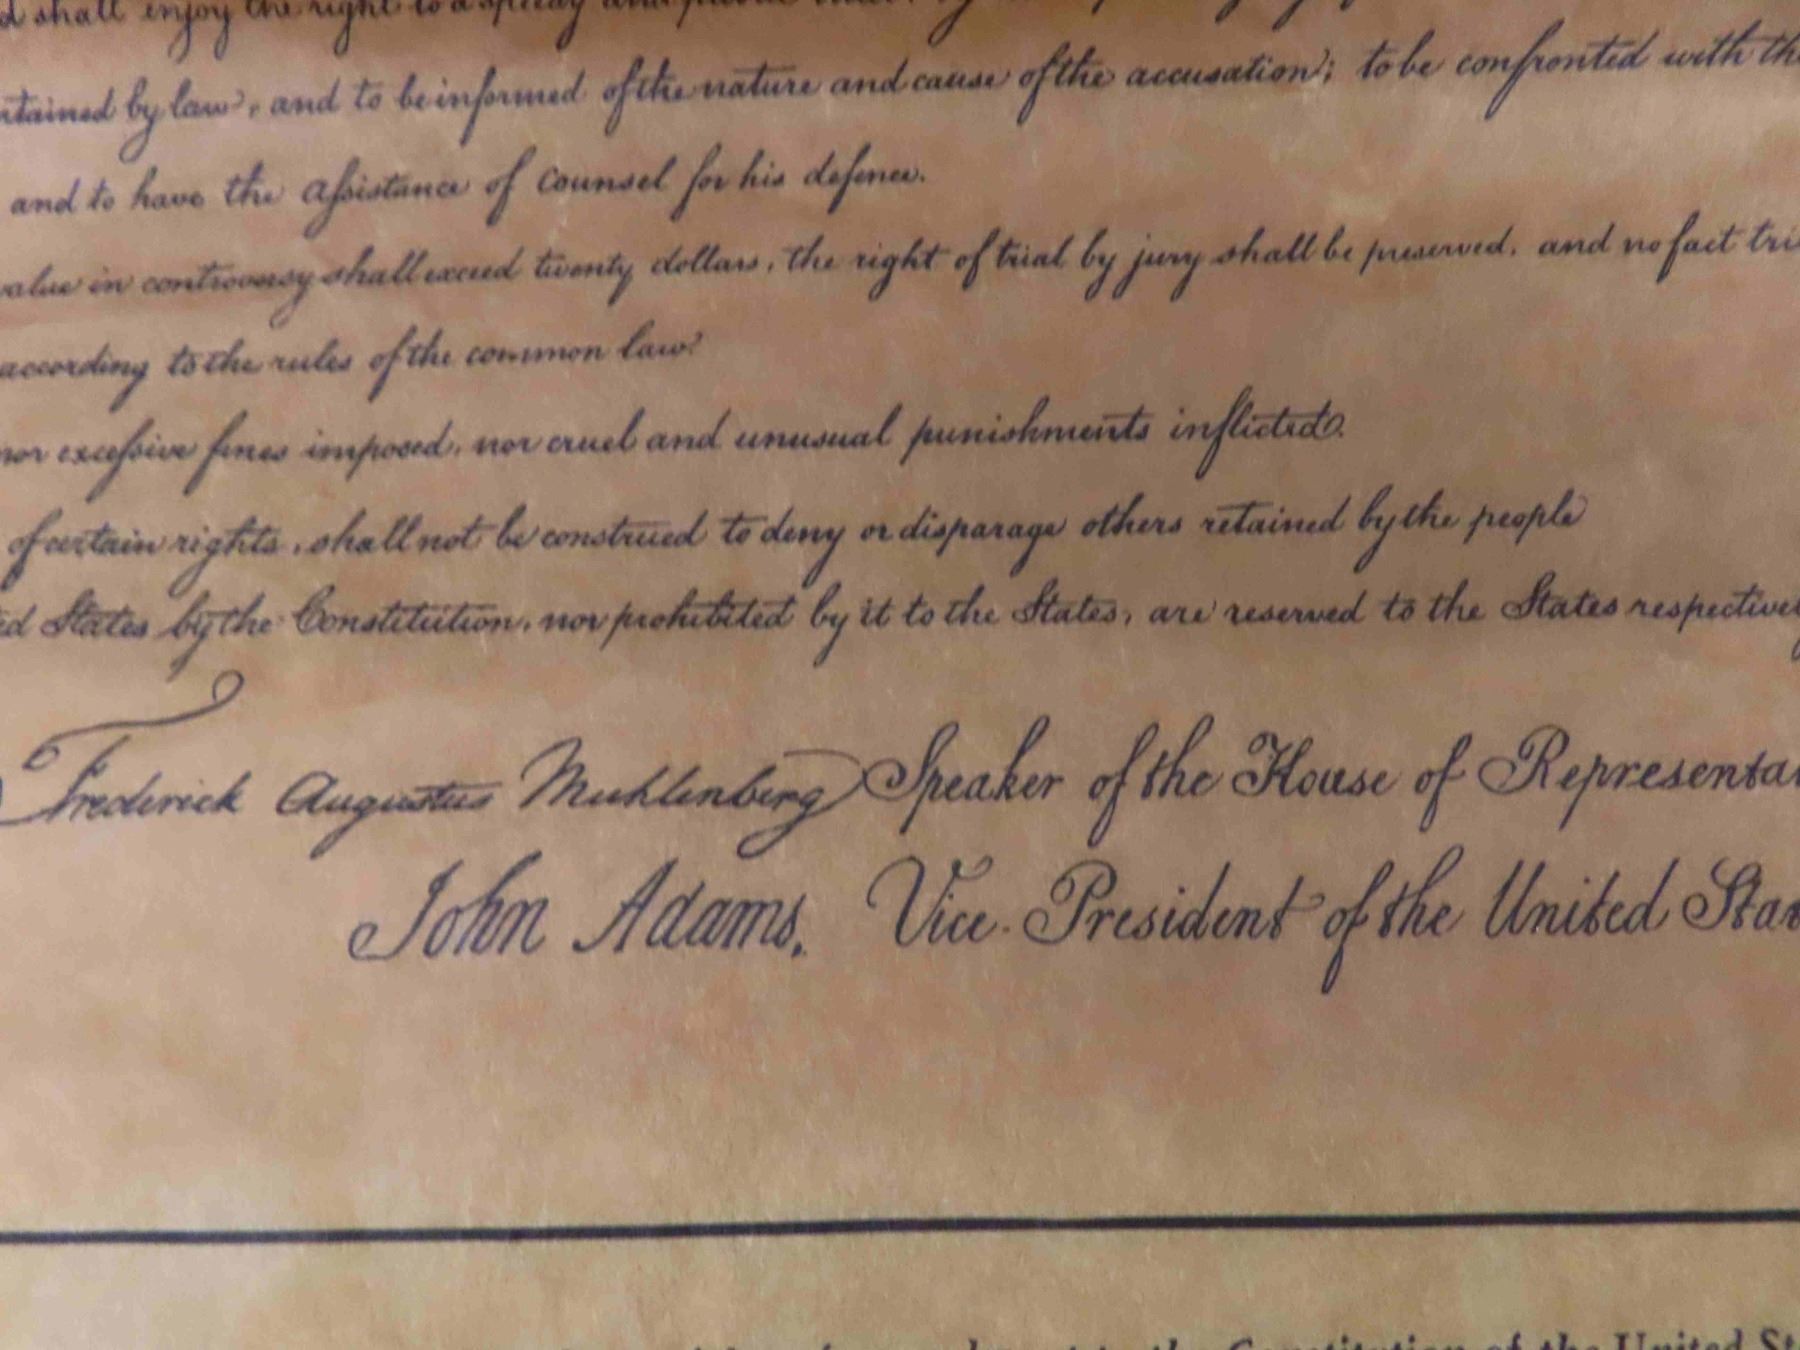 shall enjoy the right to a speedy and public
by law, and to be informed of the nature and cause of the accusation; to be confronted with
and to have the assistance of counsel for his defence.
value in controversy shall exceed twenty dollars, the right of trial by jury shall be preserved, and no fact
according to the rules of the common law.
nor excessive fines imposed, nor cruel and unusual punishments inflicted.
of certain rights, shall not be construed to deny or disparage others retained by the people
States by the Constitution, nor prohibited by it to the States, are reserved to the States
Frederick Augustus Muhlenberg Speaker of the House of
John Adams, Vice-President of the United
to the Constitution of the United